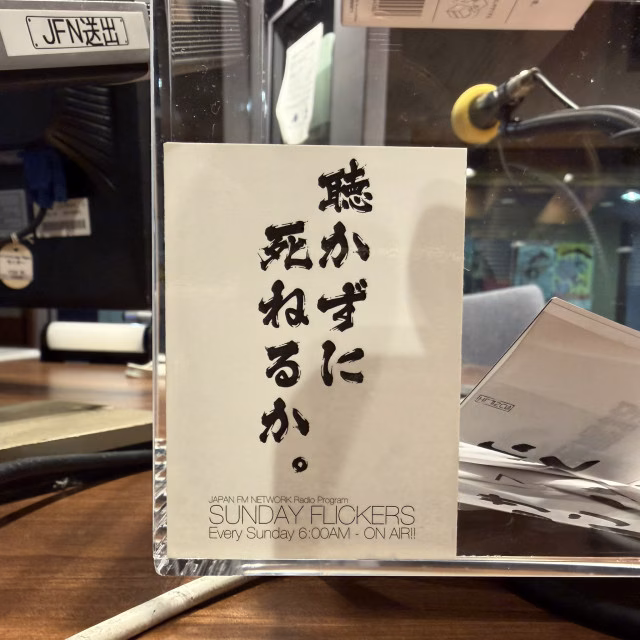 JFN送出
聴かずに
死ねるか。
JAPAN FM NETWORK Radio Program
SUNDAY FLICKERS
Every Sunday 6:00AM - ON AIR!!